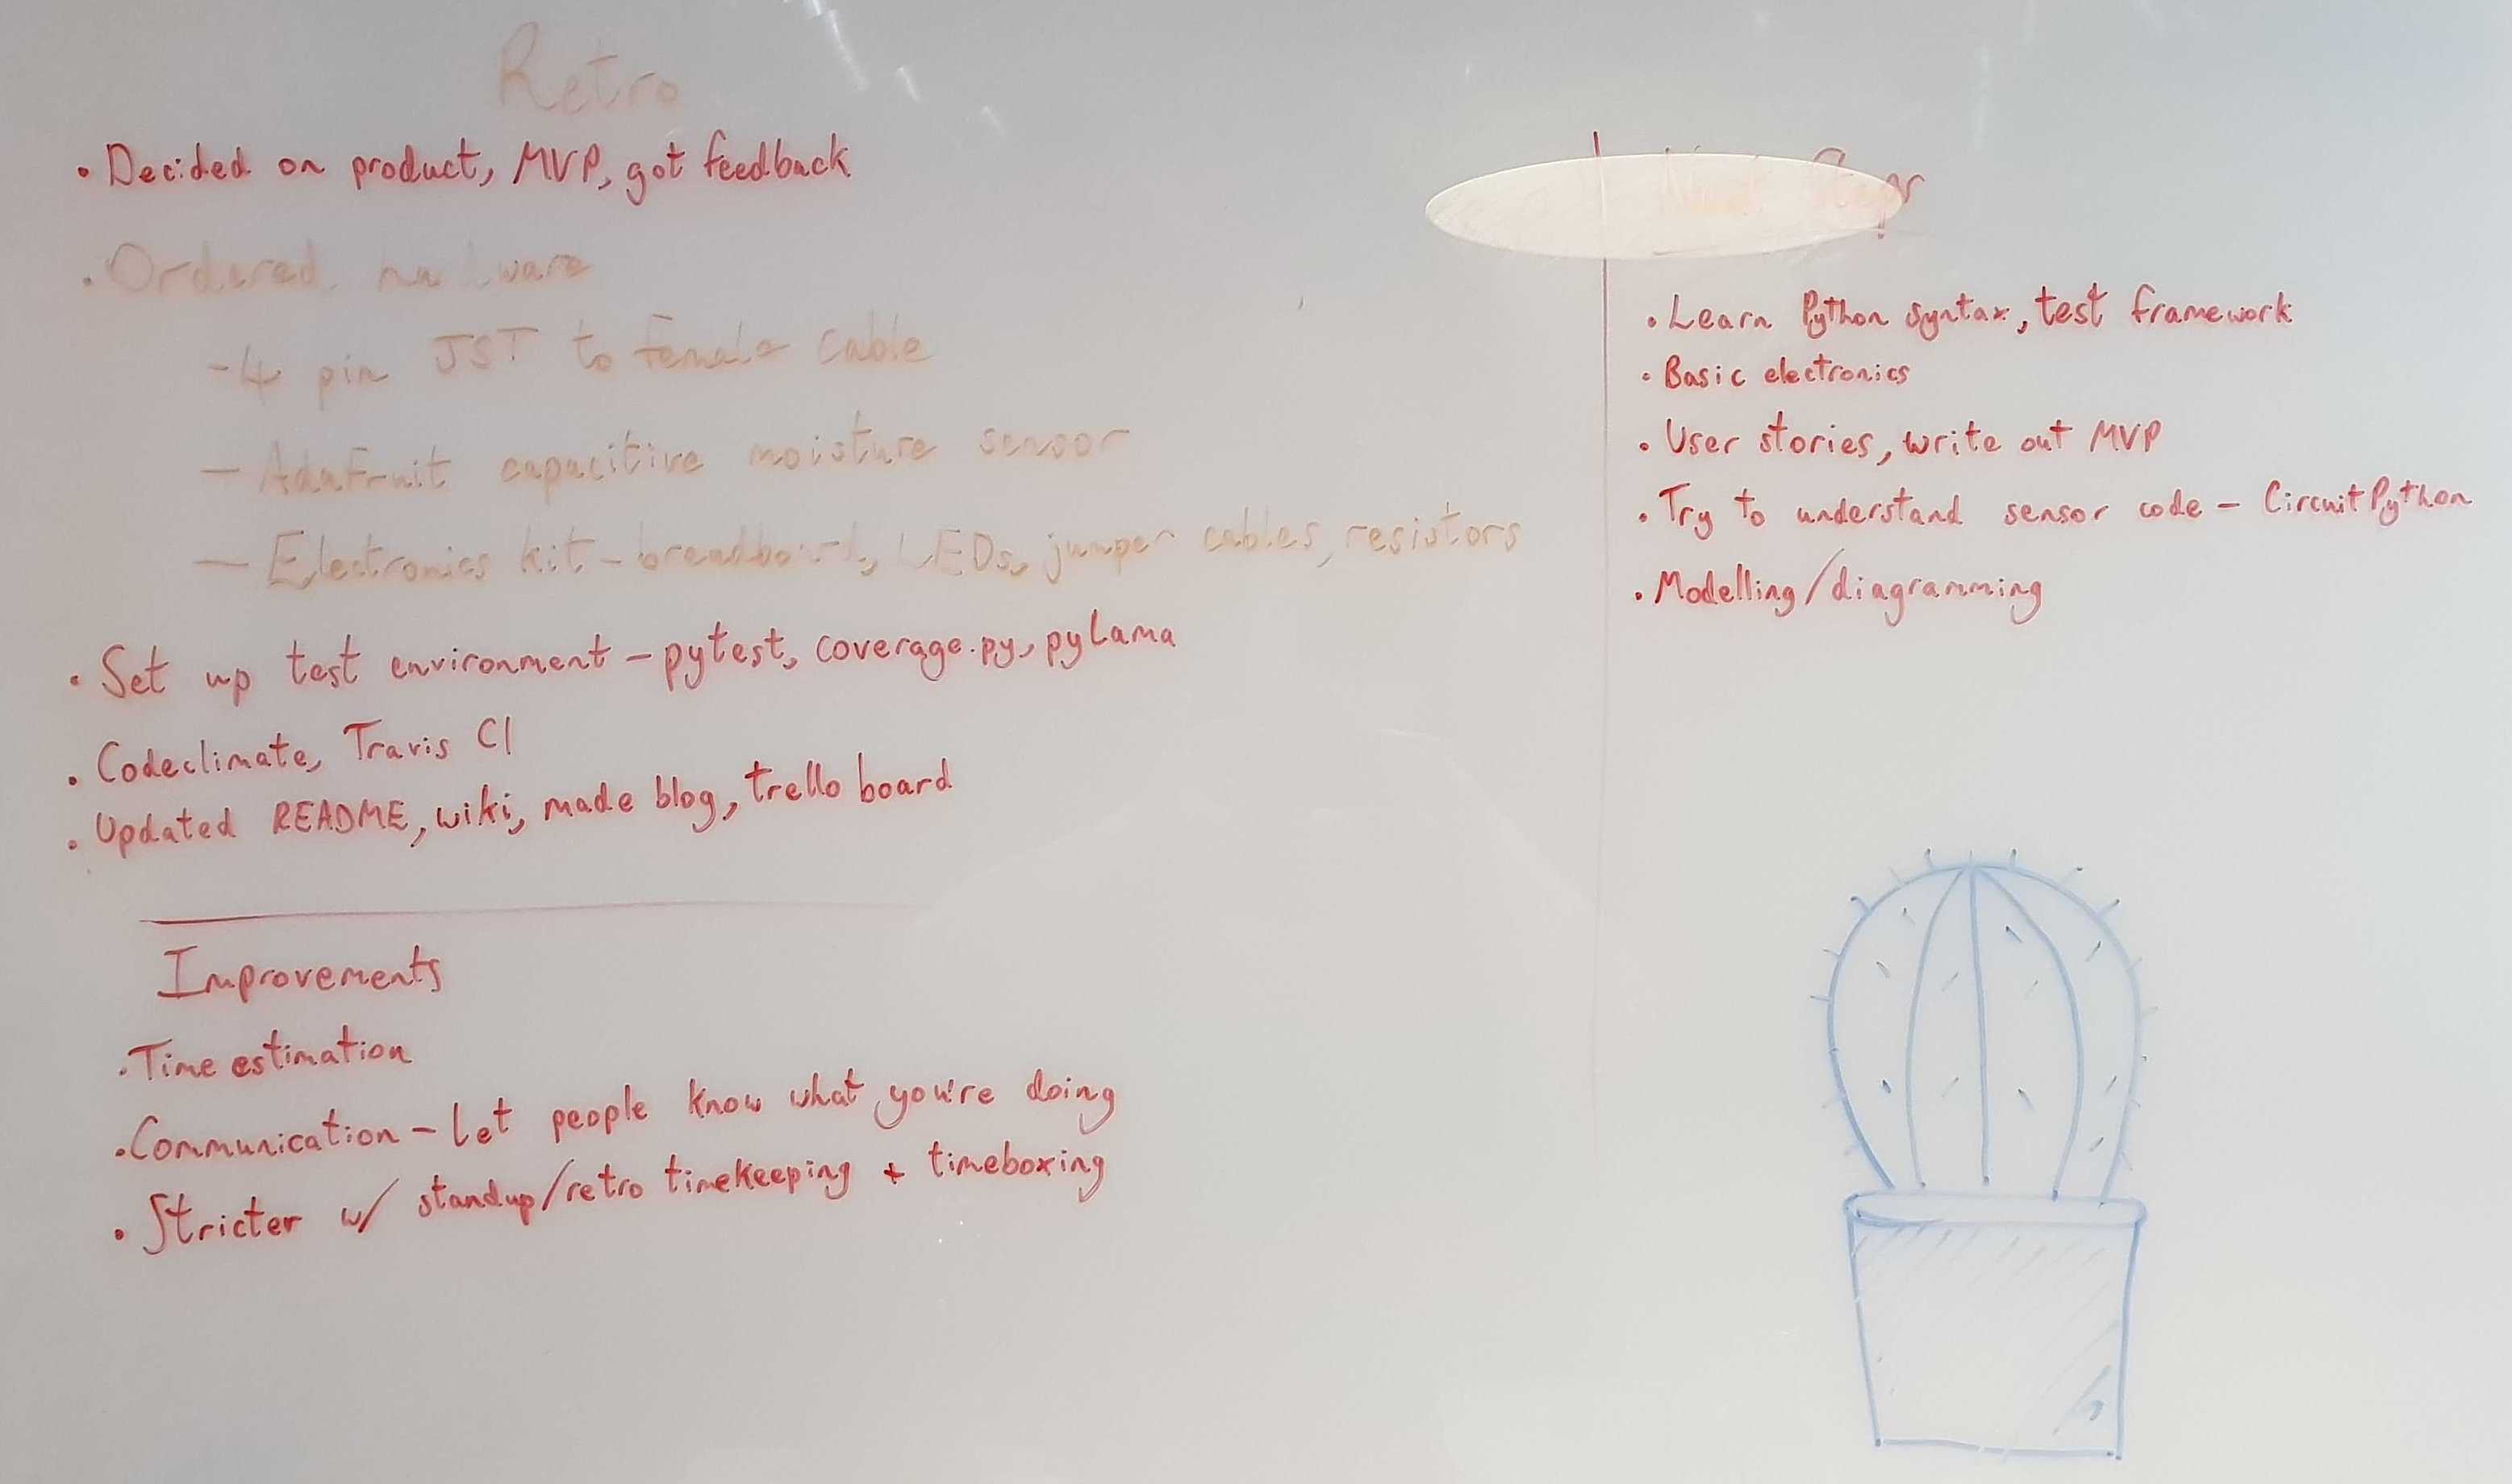 Retro
• Decided on product, MVP, got feedback
• Ordered hardware
- 4 pin JST to female cable
- Adafruit capacitive moisture sensor
- Electronics kit - breadboard, LEDs, jumper cables, resistors
• Set up test environment - pytest, coverage.py, pylama
• Codeclimate, Travis CI
• Updated README, wiki, made blog, trello board
Improvements
• Time estimation
• Communication - let people know what you're doing
• Stricter w/ standup/retro timekeeping + timeboxing
• Learn Python syntax, test framework
• Basic electronics
• User stories, write out MVP
• Try to understand sensor code - CircuitPython
• Modelling/diagramming